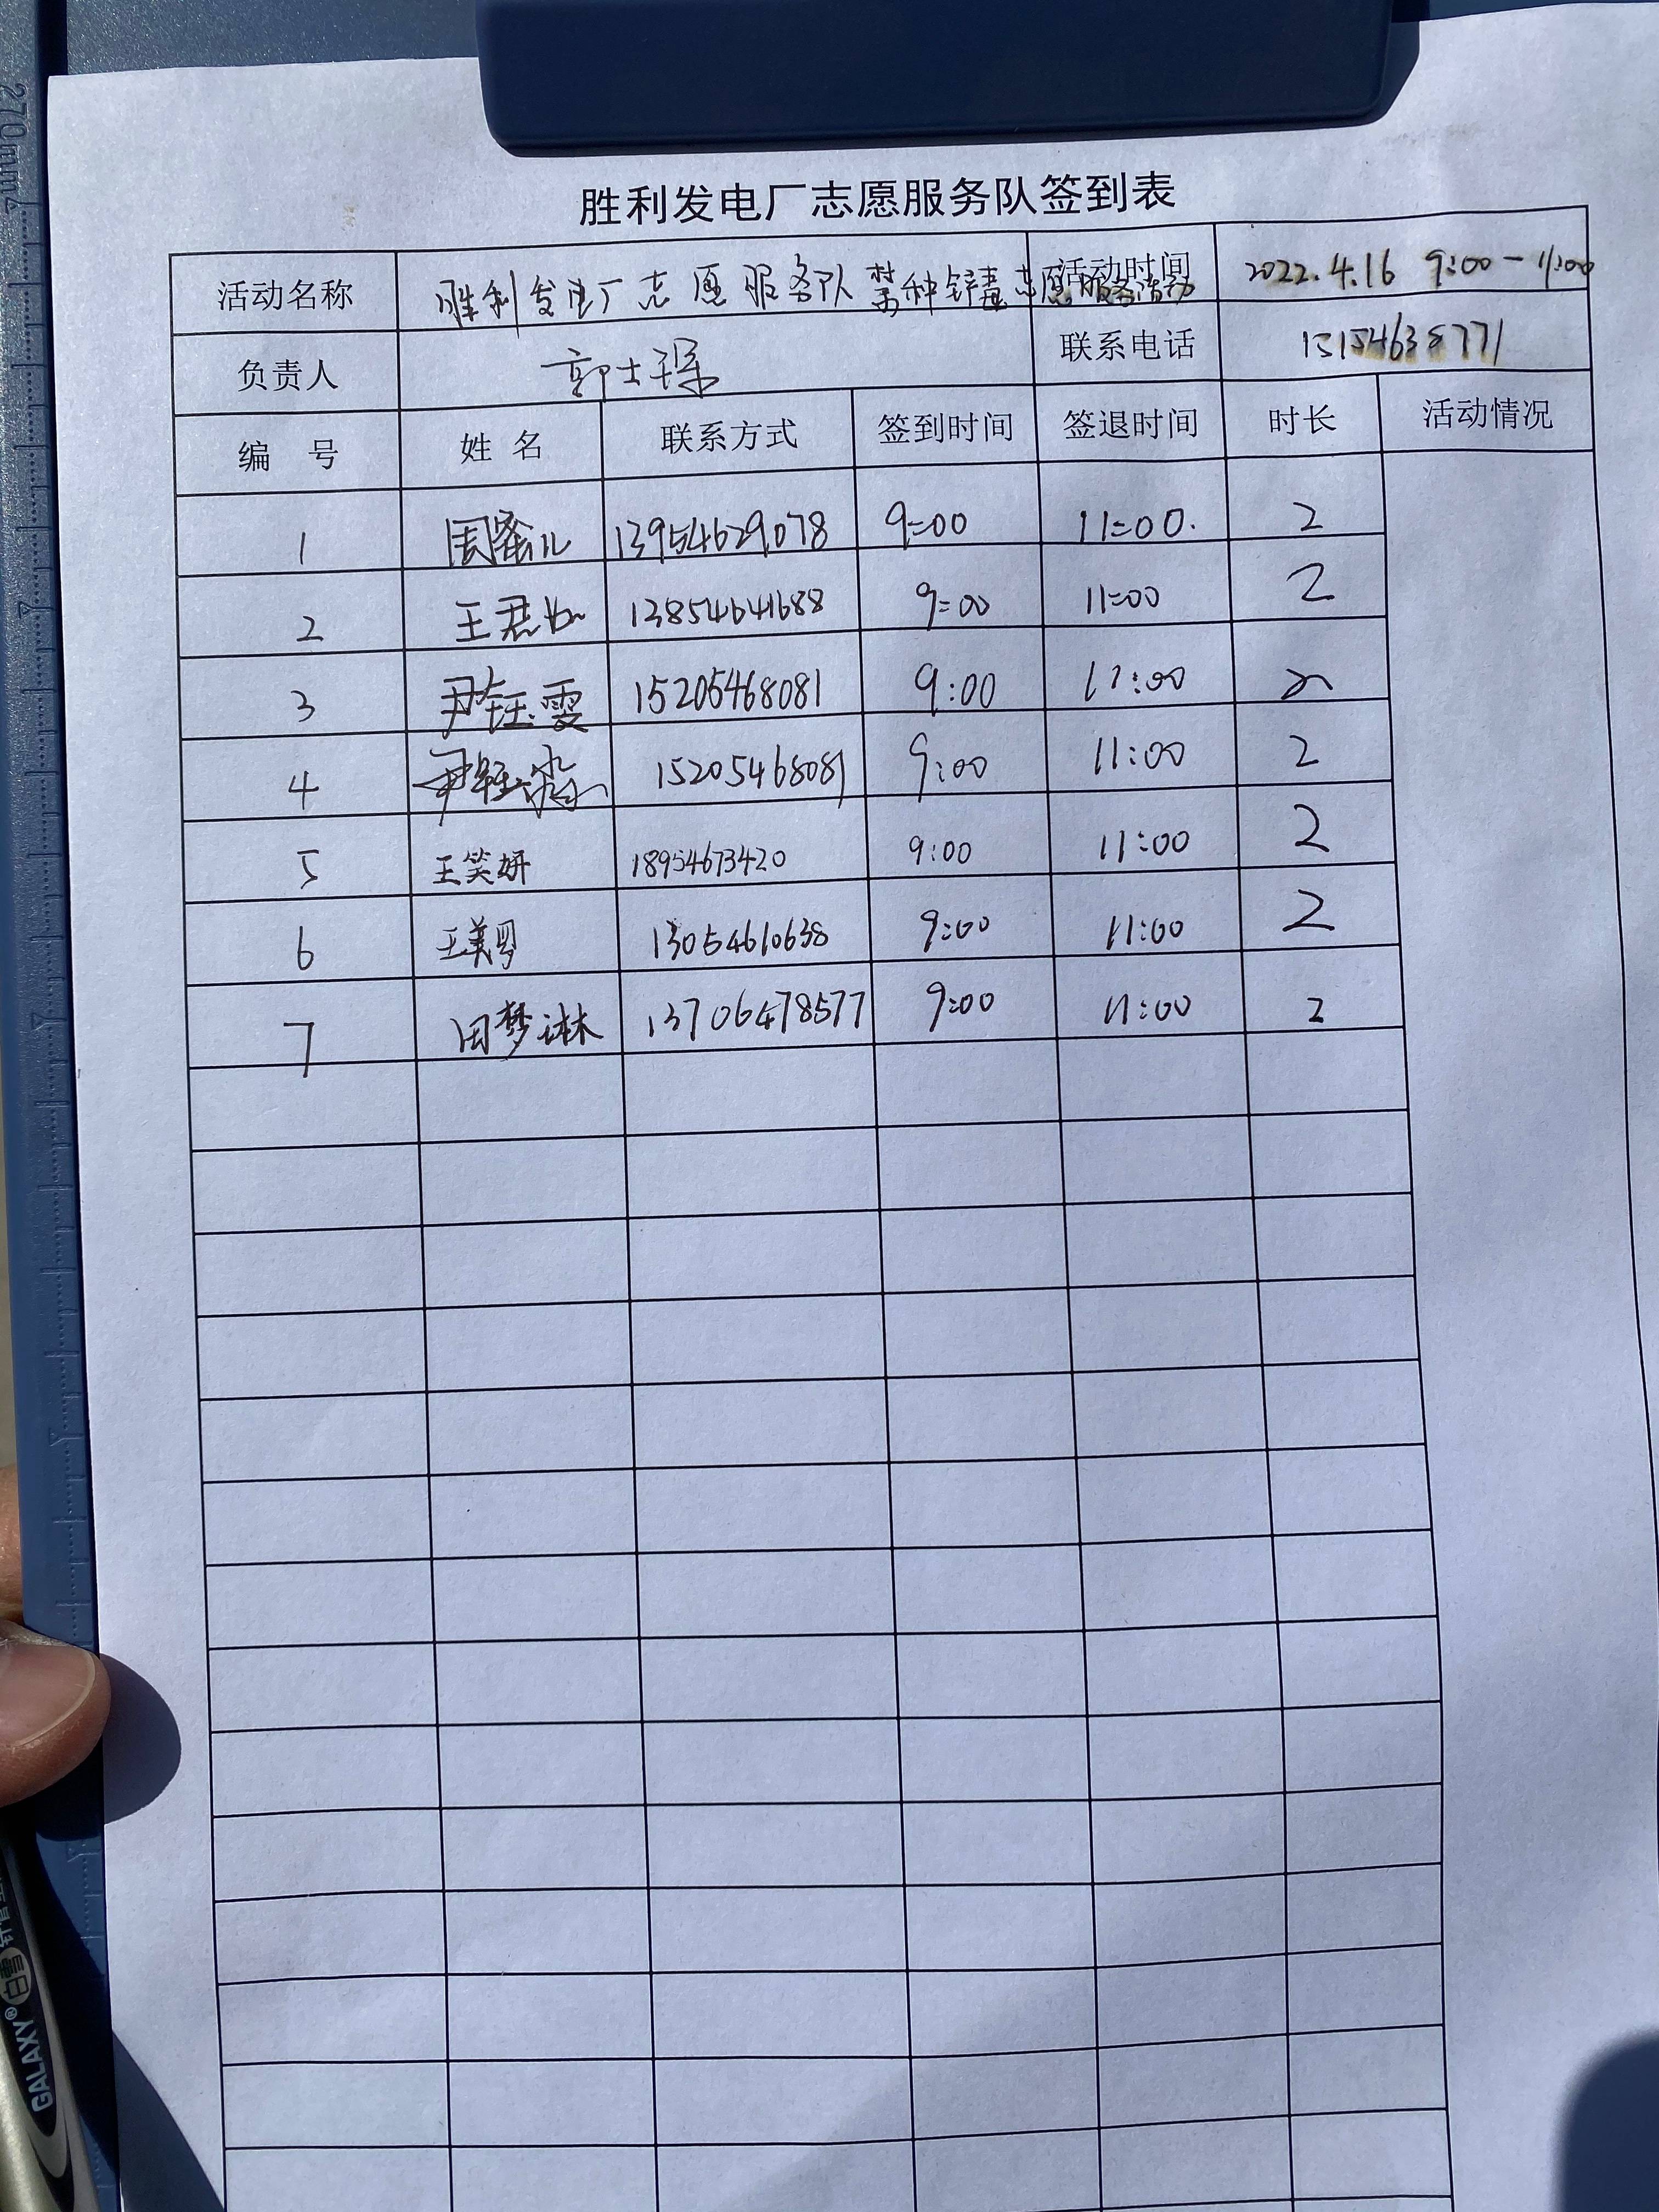 270mm
胜利发电厂志愿服务队签到表
活动名称 胜利发电厂志愿服务队禁种铲毒志愿服务活动 活动时间 2022.4.16 9:00-11:00
负责人 郭士琛 联系电话 15154638771
编 号 姓 名 联系方式 签到时间 签退时间 时长 活动情况
1 周 13954629078 9:00 11:00. 2
2 王君如 13854641688 9:00 11:00 2
3 尹钰雯 15205468081 9:00 11:00 2
4 尹 15205468081 9:00 11:00 2
5 王笑妍 18954673420 9:00 11:00 2
6 王 13054610638 9:00 11:00 2
7 田梦琳 13706478577 9:00 11:00 2
白雪
GALAXY®